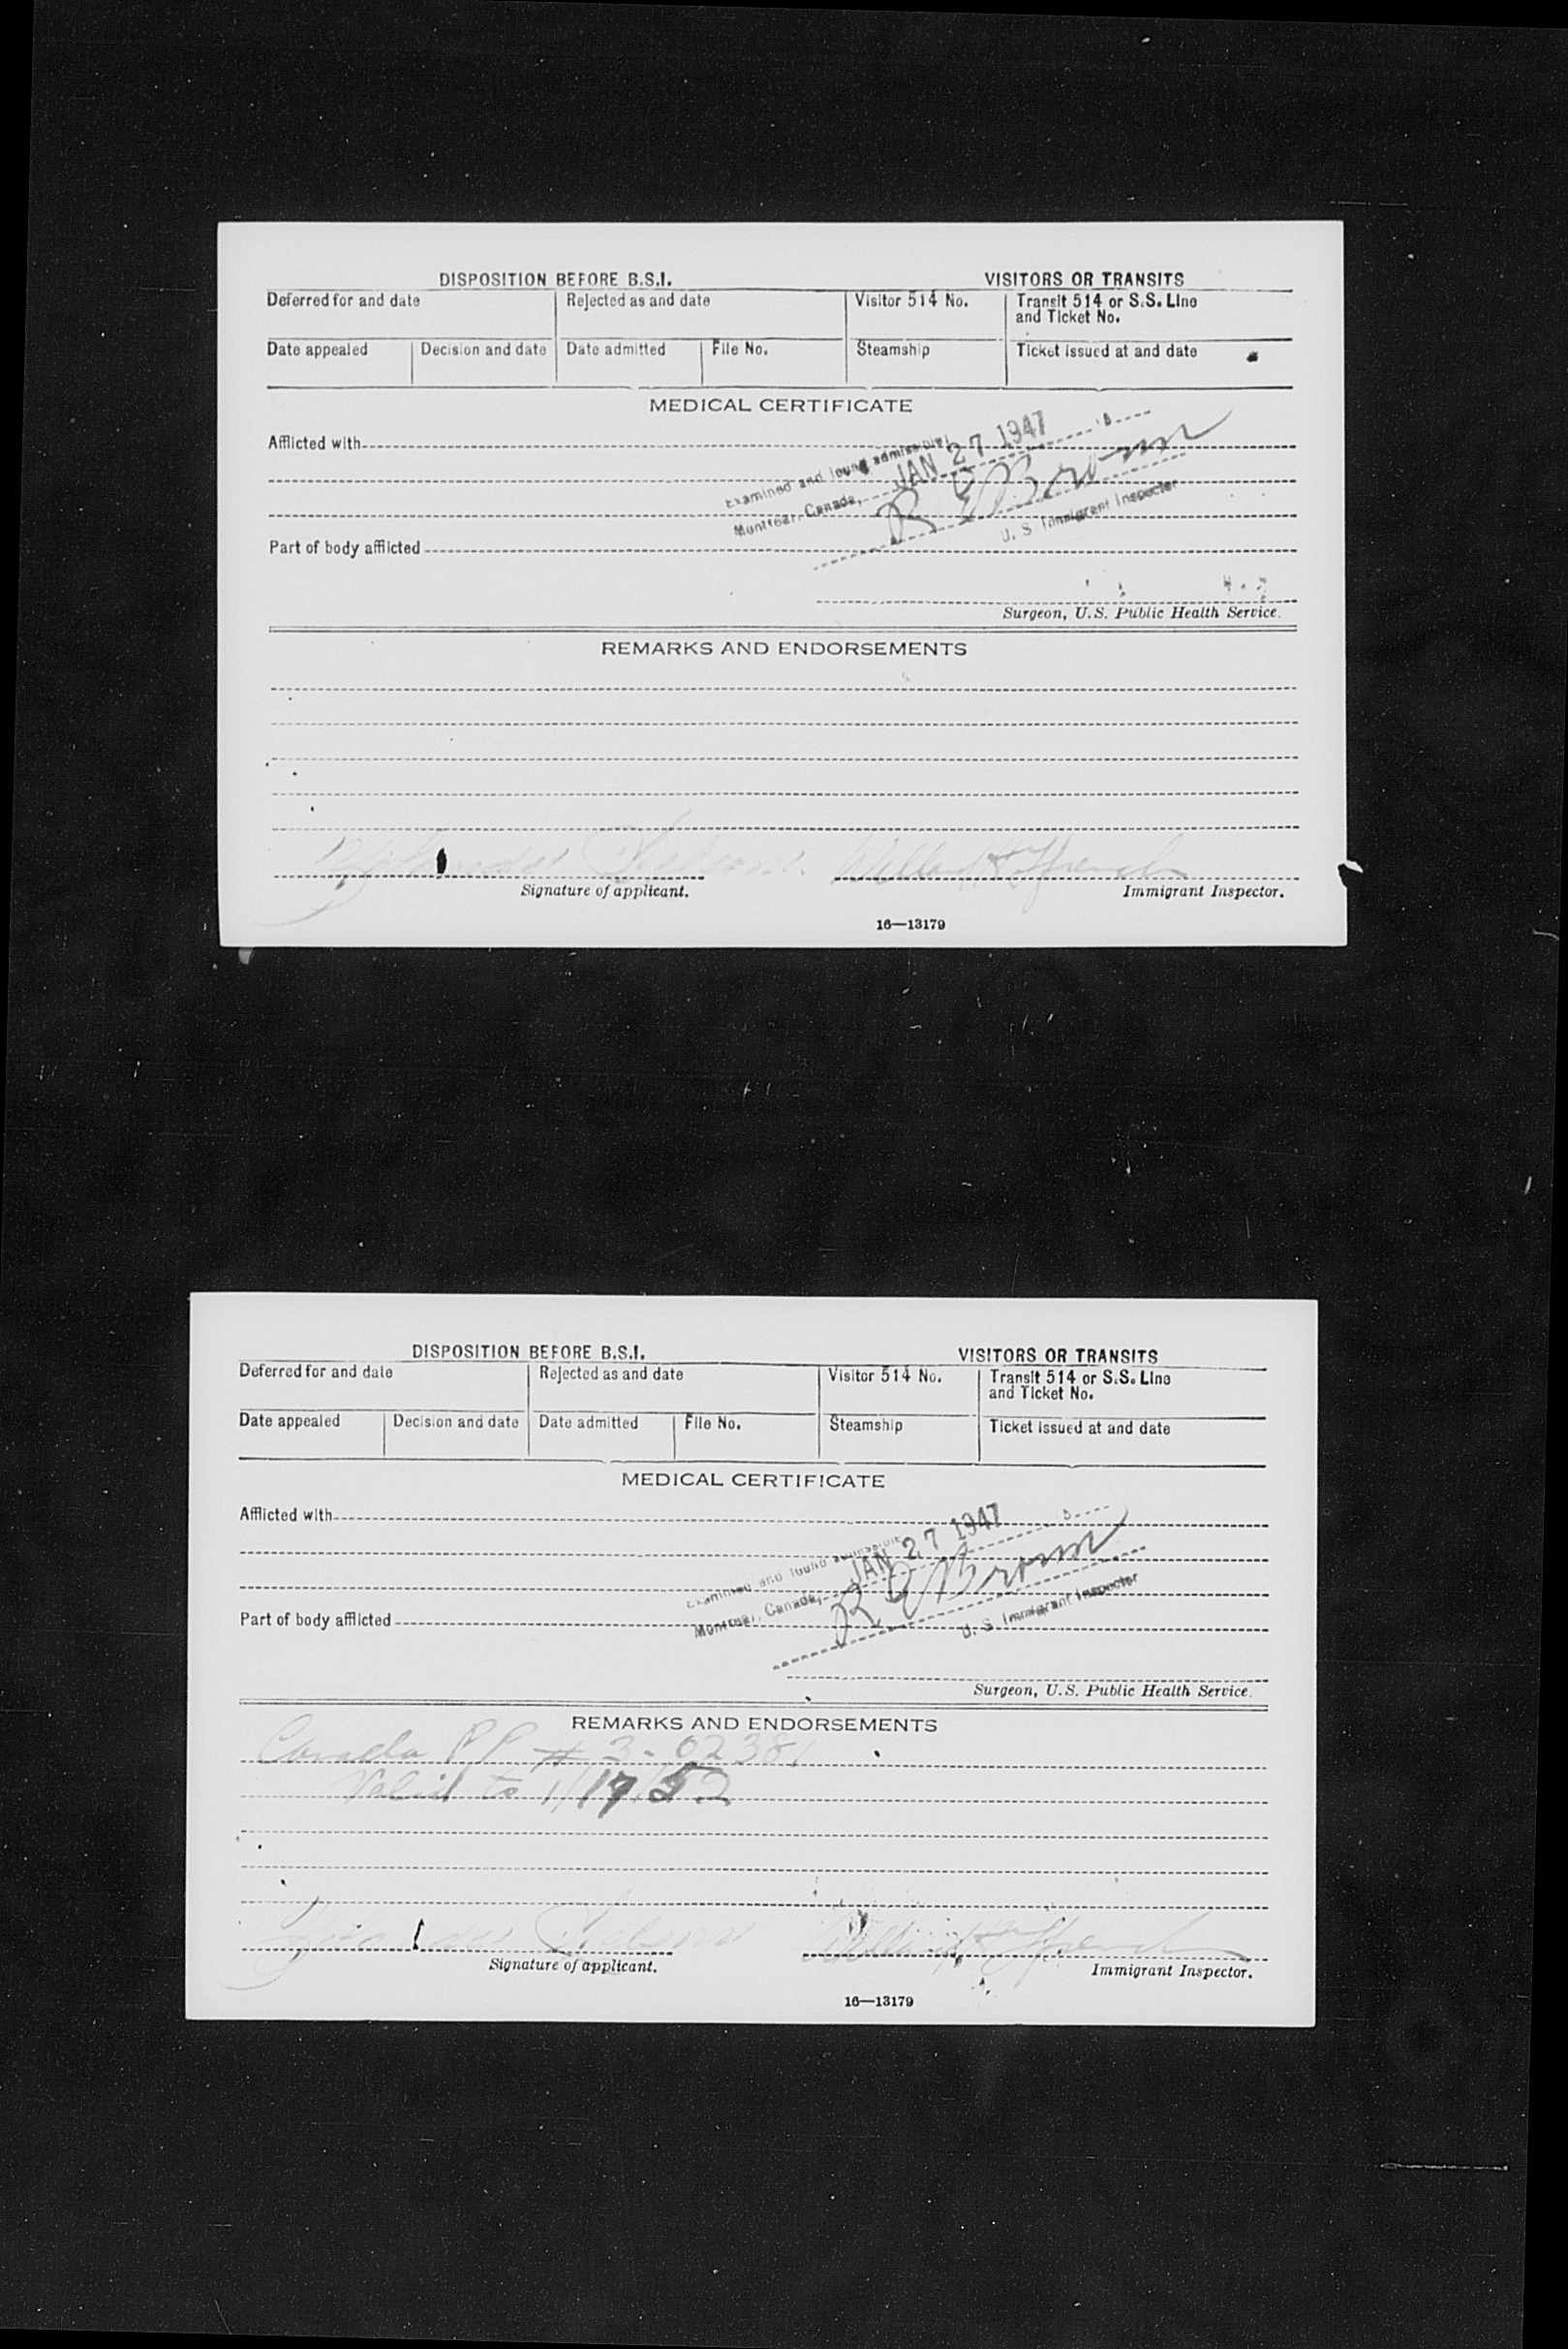 DISPOSITION BEFORE B.S.I. VISITORS OR TRANSITS
Deferred for and date Rejected as and date Visitor 514 No. Transit 514 or S.S. Line
and Ticket No.
Date appealed Decision and date Date admitted File No. Steamship Ticket issued at and date
MEDICAL CERTIFICATE
Afflicted with
Examined and found admissible,
Montreal, Canada, JAN 27 1947
R E Brown
U. S. Immigrant Inspector
Part of body afflicted
Surgeon, U.S. Public Health Service.
REMARKS AND ENDORSEMENTS
Signature of applicant. Immigrant Inspector.
16—13179
DISPOSITION BEFORE B.S.I. VISITORS OR TRANSITS
Deferred for and date Rejected as and date Visitor 514 No. Transit 514 or S.S. Line
and Ticket No.
Date appealed Decision and date Date admitted File No. Steamship Ticket issued at and date
MEDICAL CERTIFICATE
Afflicted with
Examined and found admissible
Montreal, Canada, JAN 27 1947
R E Brown
U. S. Immigrant Inspector
Part of body afflicted
Surgeon, U.S. Public Health Service.
REMARKS AND ENDORSEMENTS
Canada PP # 3-02381
Valid to 1/17/52
Signature of applicant. Immigrant Inspector.
16—13179